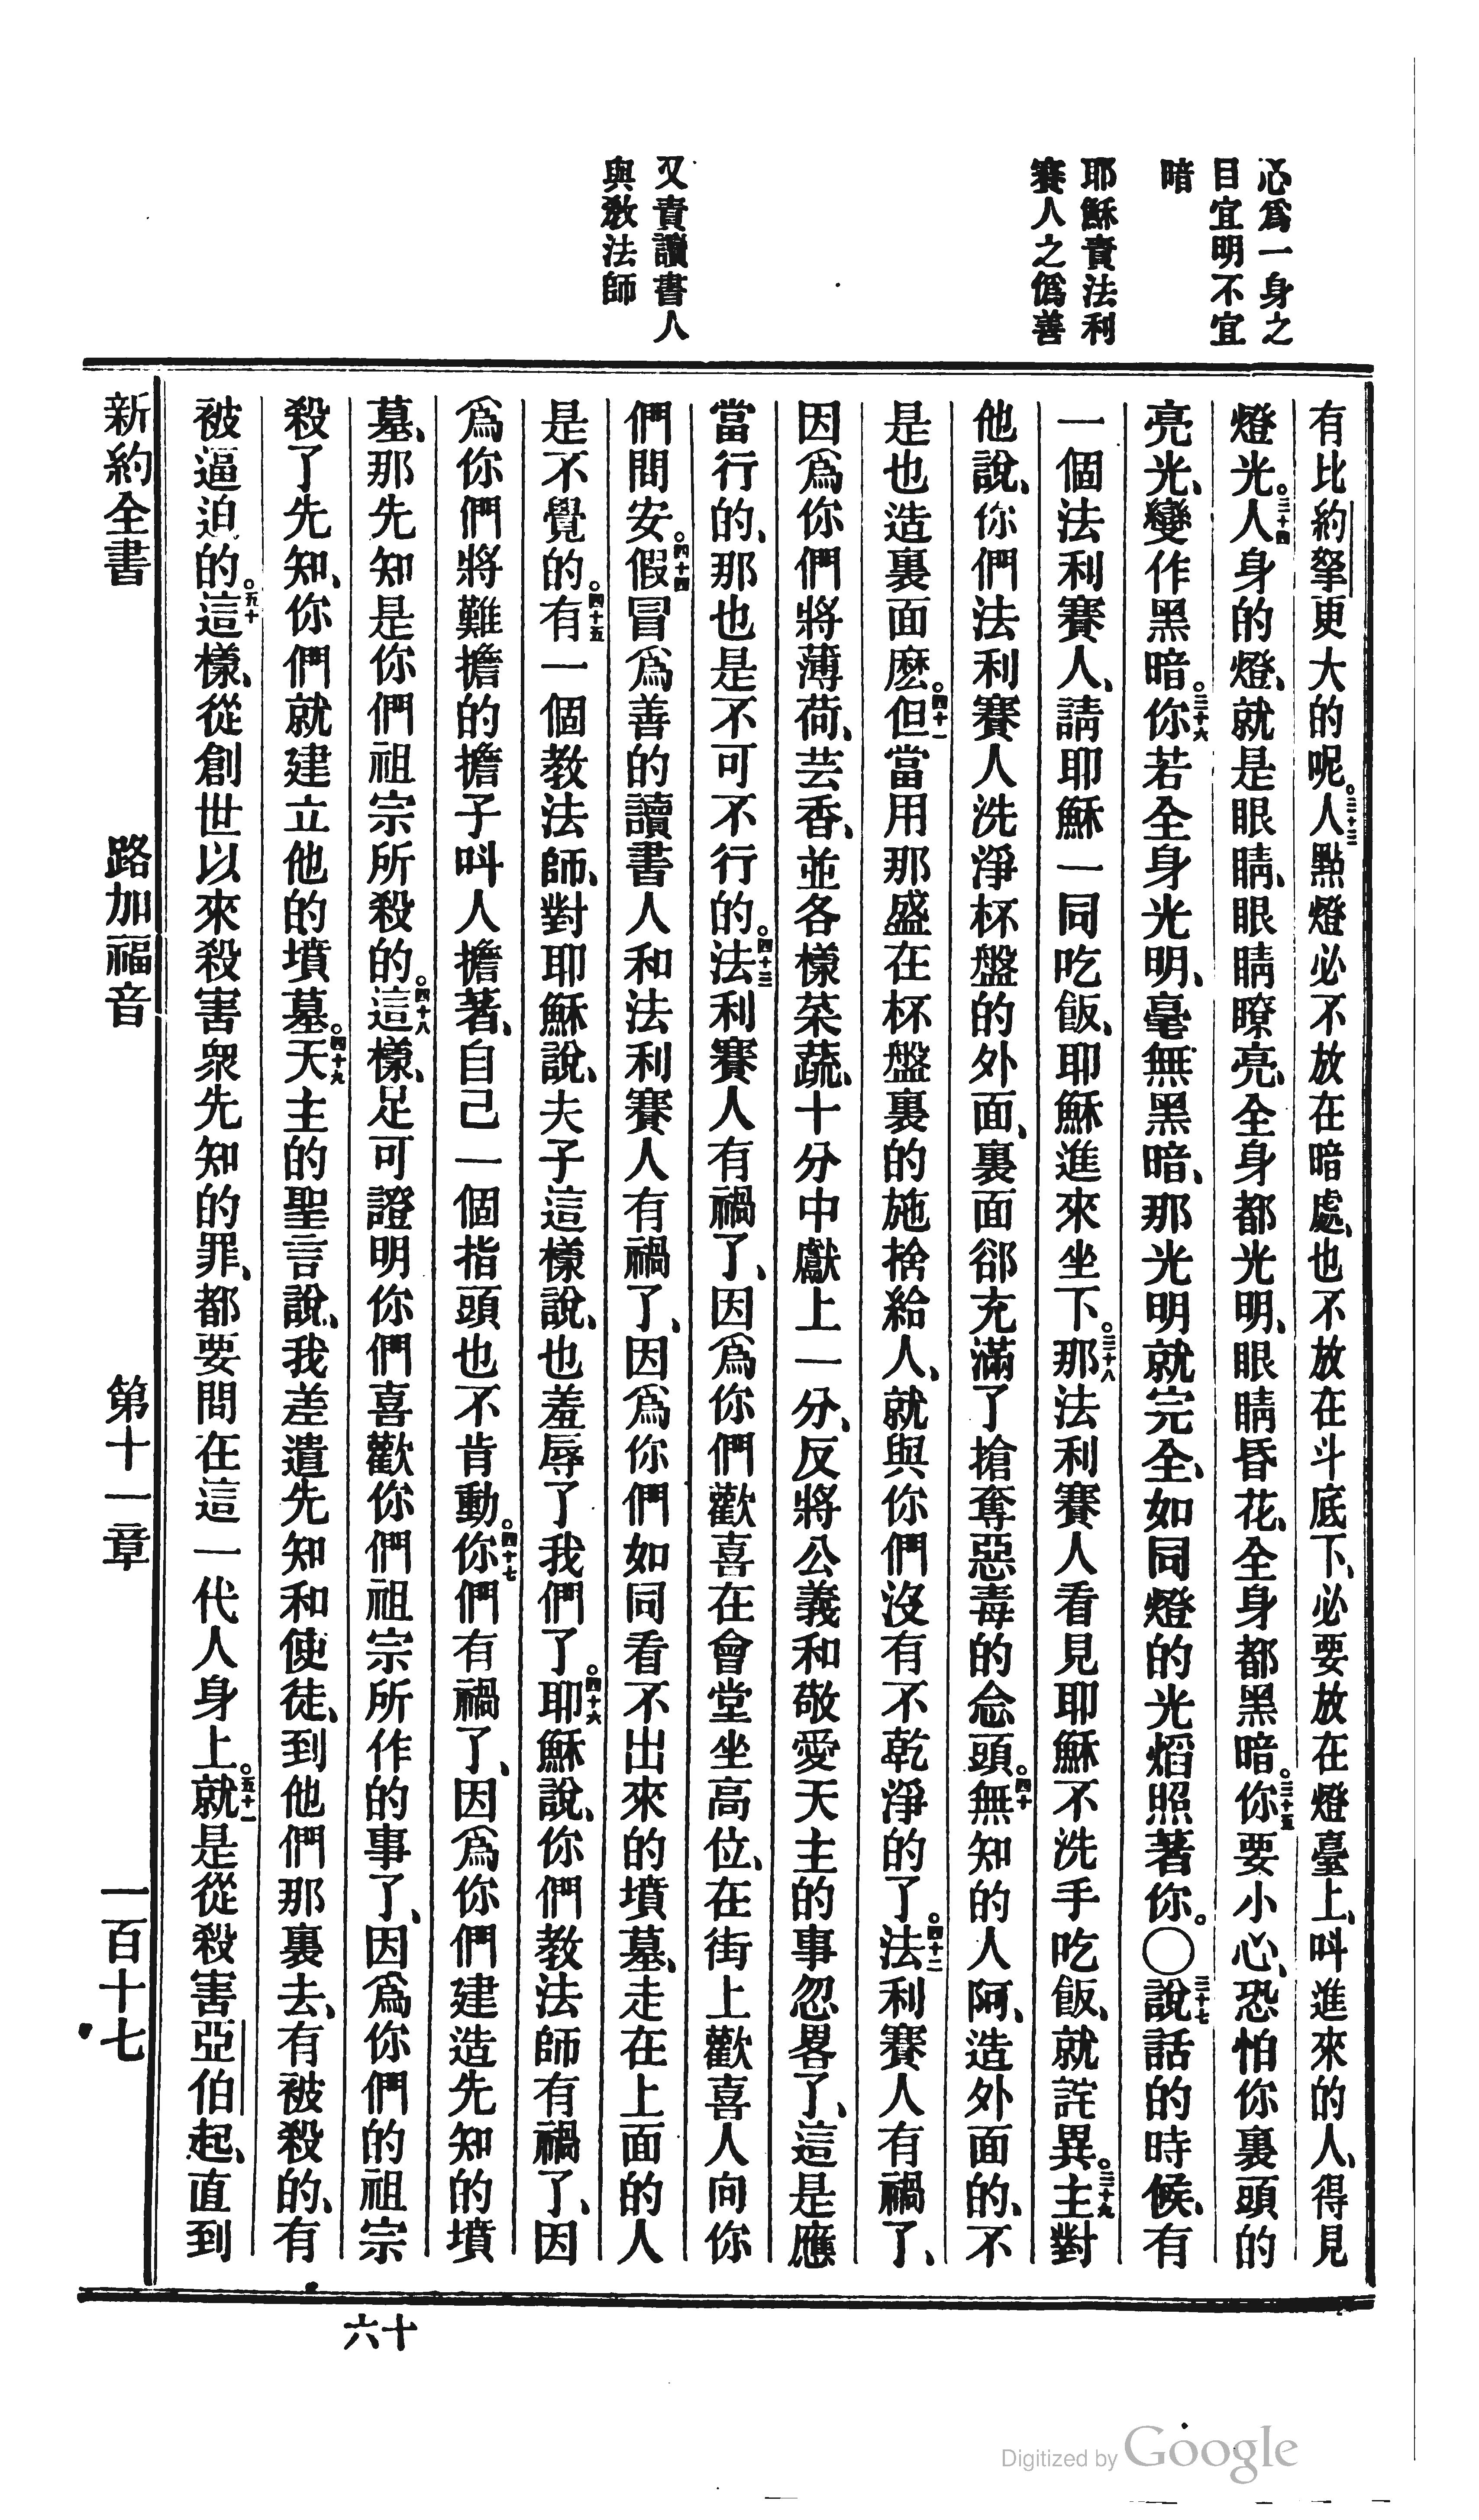 心爲一身之
目宜明不宜
暗
耶穌責法利
賽人之僞善
又責讀書人
與教法師
有比約拏更大的呢。三十三人點燈必不放在暗處、也不放在斗底下、必要放在燈臺上、呌進來的人、得見
燈光。三十四人身的燈、就是眼睛、眼睛瞭亮、全身都光明、眼睛昏花、全身都黑暗。三十五你要小心、恐怕你裏頭的
亮光、變作黑暗。三十六你若全身光明、毫無黑暗、那光明就完全、如同燈的光熖照著你。〇三十七說話的時候、有
一個法利賽人、請耶穌一同吃飯、耶穌進來坐下。三十八那法利賽人看見耶穌不洗手吃飯、就詫異。三十九主對
他說、你們法利賽人洗淨杯盤的外面、裏面郤充滿了搶奪惡毒的念頭。四十無知的人阿、造外面的、不
是也造裏面麽。四十一但當用那盛在杯盤裏的施捨給人、就與你們沒有不乾淨的了。四十二法利賽人有禍了、
因爲你們將薄荷、芸香、並各樣菜蔬、十分中獻上一分、反將公義和敬愛天主的事忽畧了、這是應
當行的、那也是不可不行的。四十三法利賽人有禍了、因爲你們歡喜在會堂坐高位、在街上歡喜人向你
們問安。四十四假冒爲善的讀書人和法利賽人有禍了、因爲你們如同看不出來的墳墓、走在上面的人
是不覺的。四十五有一個教法師、對耶穌說、夫子這樣說、也羞辱了我們了。四十六耶穌說、你們教法師有禍了、因
爲你們將難擔的擔子呌人擔著、自己一個指頭也不肯動。四十七你們有禍了、因爲你們建造先知的墳
墓、那先知是你們祖宗所殺的。四十八這樣、足可證明你們喜歡你們祖宗所作的事了、因爲你們的祖宗
殺了先知、你們就建立他的墳墓。四十九天主的聖言說、我差遣先知和使徒、到他們那裏去、有被殺的、有
被逼迫的。五十這樣、從創世以來殺害衆先知的罪、都要問在這一代人身上。五十一就是從殺害亞伯起、直到
新約全書 路加福音 第十一章 一百十七
六十
Digitized by Google